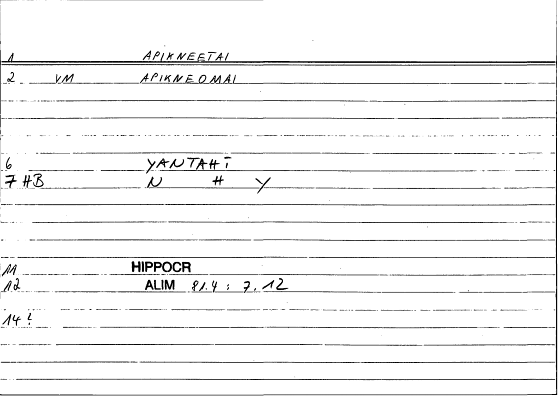 1 APIKNEETAI
2 VM APIKNEOMAI
6 YANTAHT
7 HB N H Y
11 HIPPOCR
12 ALIM 81.4 : 7.12
14 !